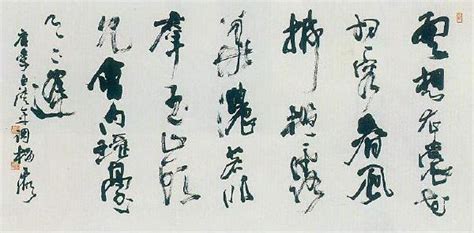 雲想衣裳花
想容春風
拂檻露
華濃若非
羣玉山頭
見會向瑶臺
月下逢
唐李白清平调